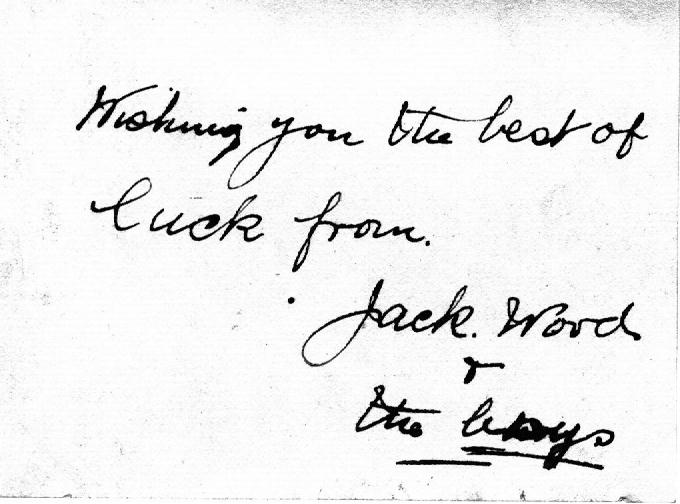 Wishing you the best of
luck from.
Jack. Wood
&
the boys